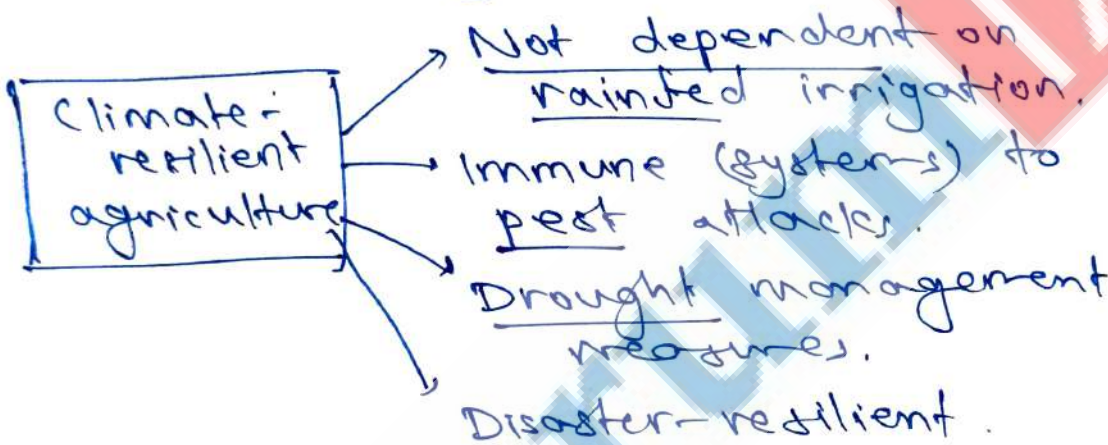 Climate-
resilient
agriculture
Not dependent on
rainfed irrigation.
Immune (systems) to
pest attacks.
Drought management
measures.
Disaster-resilient.